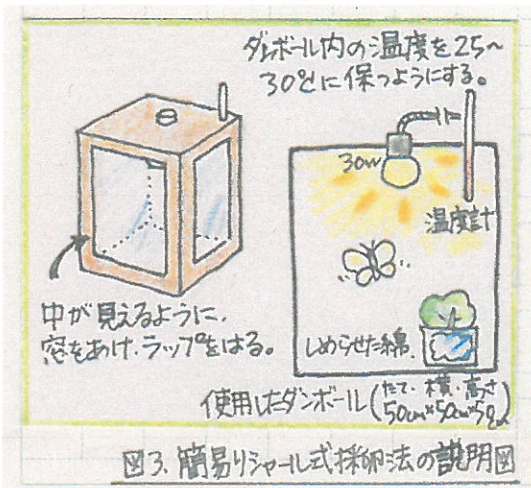 ダンボール内の温度を25〜
30℃に保つようにする。
30W
温度計
中が見えるように、
窓をあけ、ラップをはる。
しめらせた綿
使用したダンボール(たて・横・高さ
50cm×50cm×
図3. 簡易リシャール式採卵法の説明図